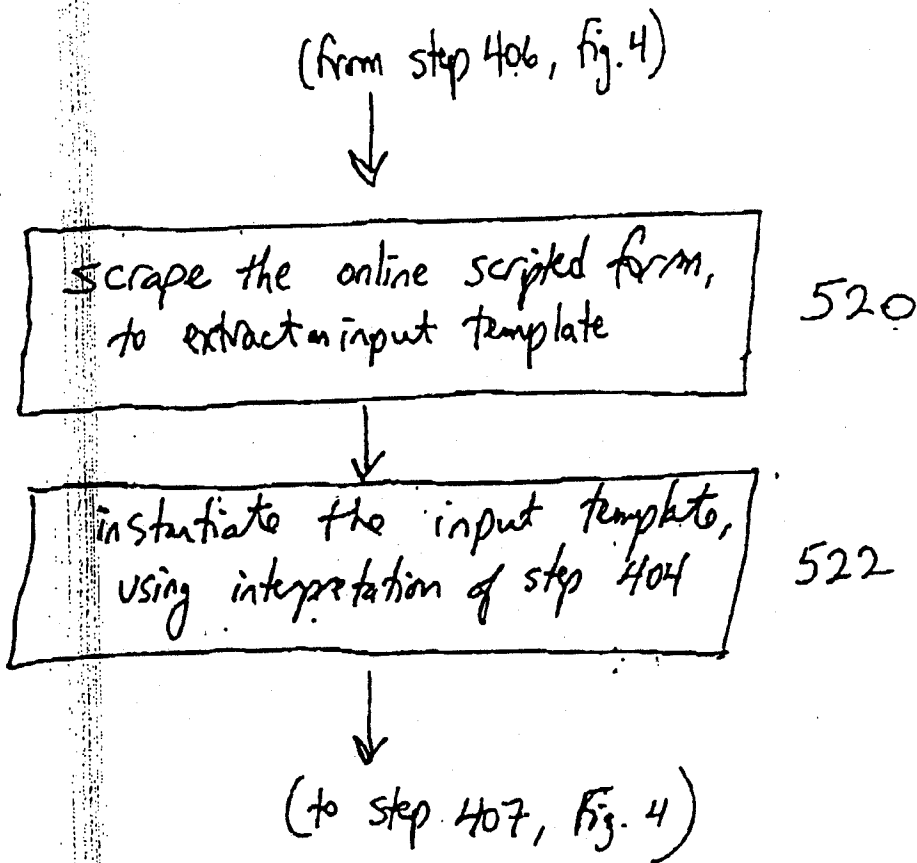 (from step 406, fig. 4)
scrape the online scripted form,
520
to extract an input template
instantiate the input template,
522
using interpretation of step 404
(to step 407, Fig. 4)